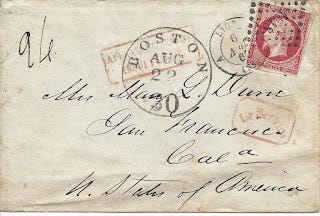 94
BOSTON
AUG
22
30
Mrs Mary L. Dunn
San Francisco
Cala
U. States of America